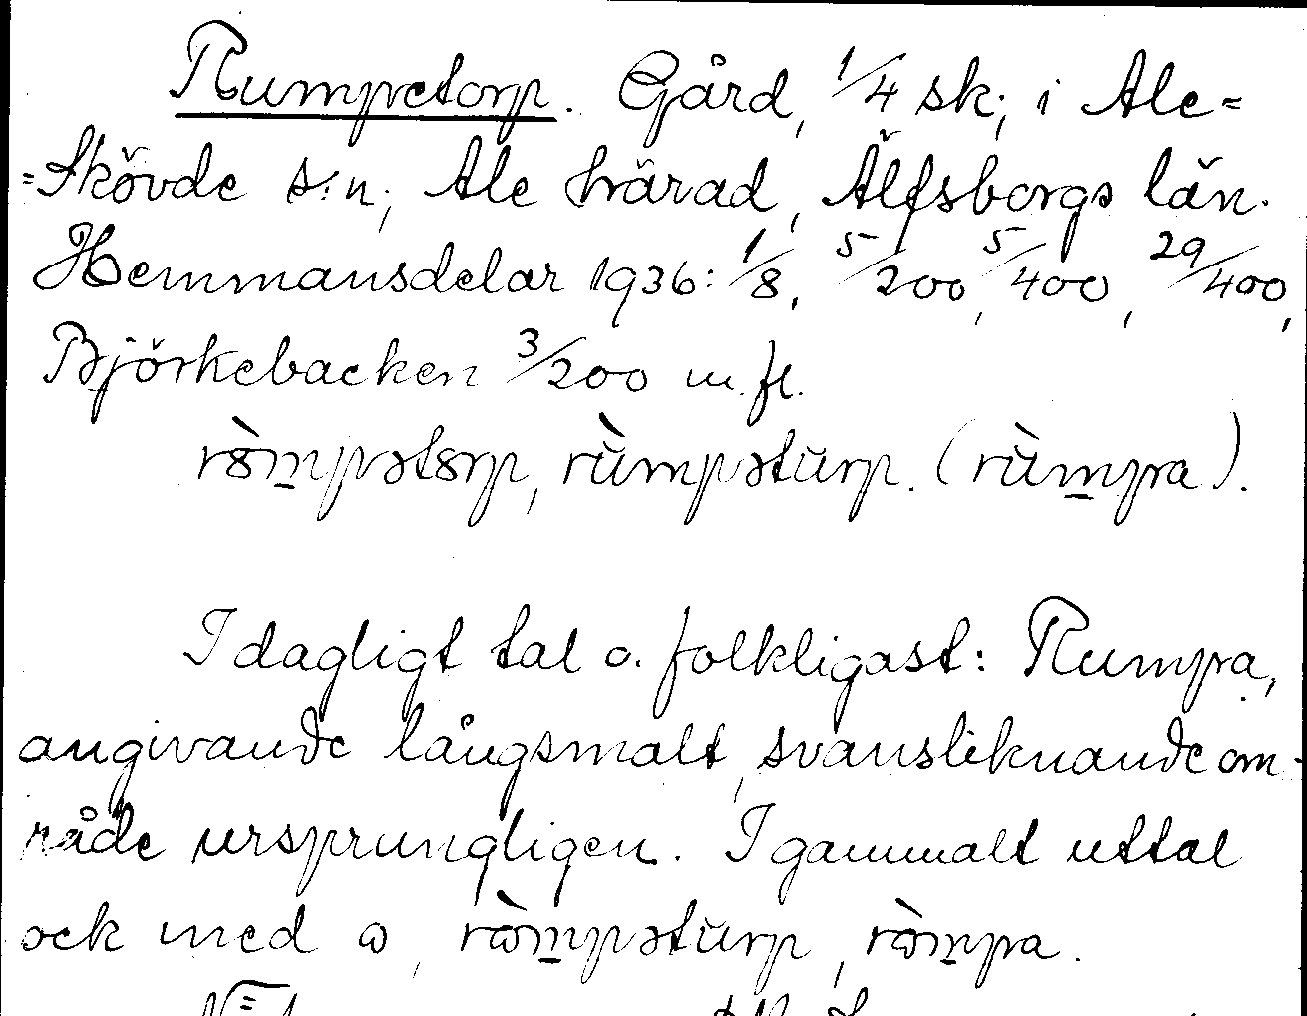 Rumpetorp. Gård, 1/4 sk; i Ale=
=Skövde s:n; Ale härad, Älfsborgs län.
Hemmansdelar 1936: 1/8, 5/200, 5/400, 29/400,
Björkebacken 3/200 m.fl.
rò̱mpətorp, rùmpəturp. (rùm̱pa).
I dagligt tal o. folkligast: Rumpa,
angivande långsmalt, svansliknande om-
råde ursprungligen. I gammalt uttal
ock med ꞷ, rꞷ̀m̱pəturp, rꞷ̀m̱pa.